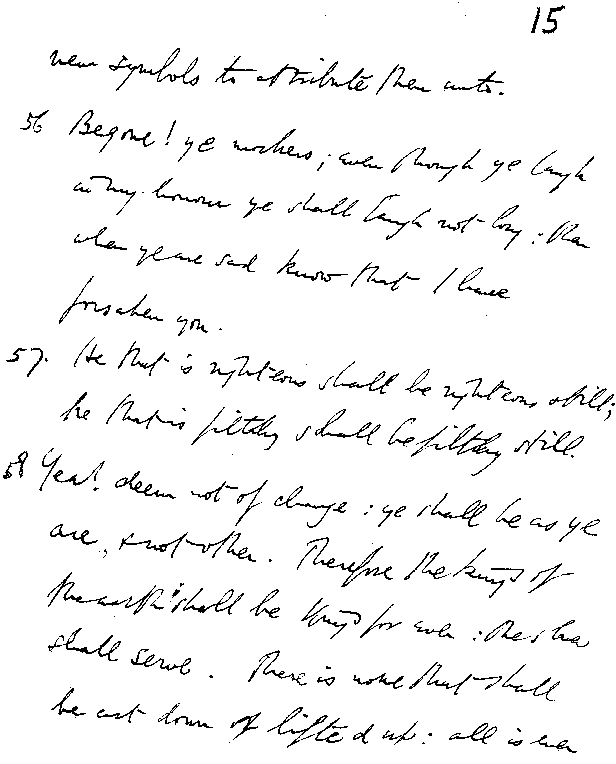 15
new symbols to attribute them unto.
56 Begone! ye mockers; even though ye laugh
in my honour ye shall laugh not long: then
when ye are sad know that I have
forsaken you.
57. He that is righteous shall be righteous still;
he that is filthy shall be filthy still.
58 Yea! deem not of change: ye shall be as ye
are, & not other. Therefore the kings of
the earth shall be Kings for ever: the slaves
shall serve. There is none that shall
be cast down or lifted up: all is ever